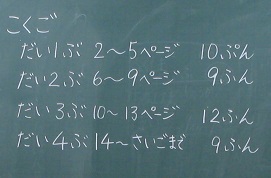 こくご
だい1ぶ 2〜5ページ 10ぷん
だい2ぶ 6〜9ページ 9ふん
だい3ぶ 10〜13ページ 12ふん
だい4ぶ 14〜さいごまで 9ふん